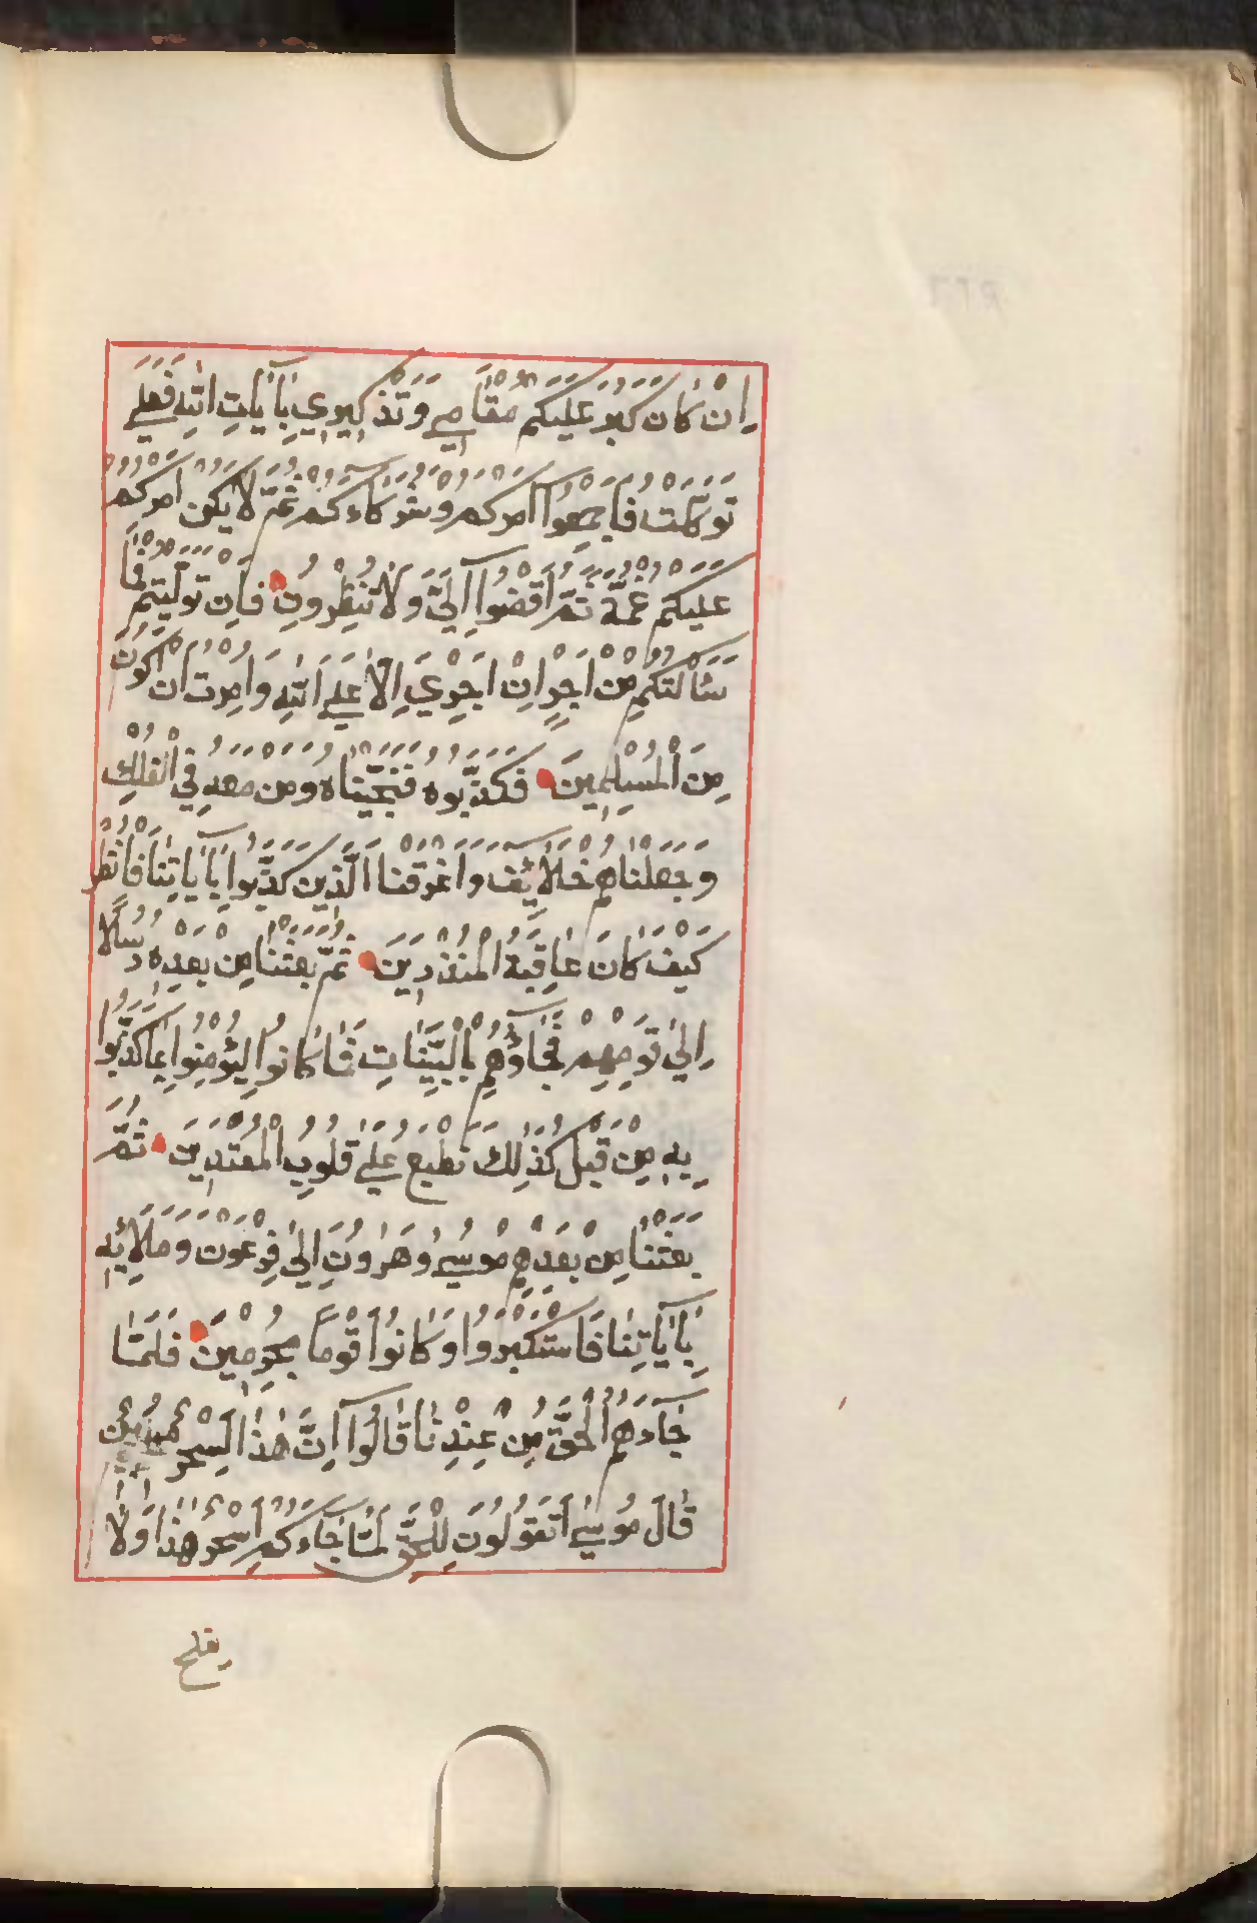 اِنْ كَانَ كَبُرَ عَلَيْكُمْ مَقَامِي وَتَذْكِيرِي بِآيَاتِ اللهِ فَعَلَى
تَوَكَّلْتُ فَاَجْمِعُوا اَمْرَكُمْ وَشُرَكَاءَكُمْ ثُمَّ لَا يَكُنْ اَمْرُكُمْ
عَلَيْكُمْ غُمَّةً ثُمَّ اقْضُوا اِلَيَّ وَلَا تُنْظِرُونِ فَاِنْ تَوَلَّيْتُمْ فَمَا
سَأَلْتُكُمْ مِنْ اَجْرٍ اِنْ اَجْرِيَ اِلَّا عَلَى اللهِ وَاُمِرْتُ اَنْ اَكُونَ
مِنَ الْمُسْلِمِينَ فَكَذَّبُوهُ فَنَجَّيْنَاهُ وَمَنْ مَعَهُ فِي الْفُلْكِ
وَجَعَلْنَاهُمْ خَلَائِفَ وَاَغْرَقْنَا الَّذِينَ كَذَّبُوا بِآيَاتِنَا فَانْظُرْ
كَيْفَ كَانَ عَاقِبَةُ الْمُنْذَرِينَ ثُمَّ بَعَثْنَا مِنْ بَعْدِهِ رُسُلًا
اِلَى قَوْمِهِمْ فَجَاؤُهُمْ بِالْبَيِّنَاتِ فَمَا كَانُوا لِيُؤْمِنُوا بِمَا كَذَّبُوا
بِهِ مِنْ قَبْلُ كَذَلِكَ نَطْبَعُ عَلَى قُلُوبِ الْمُعْتَدِينَ ثُمَّ
بَعَثْنَا مِنْ بَعْدِهِمْ مُوسَى وَهَرُونَ اِلَى فِرْعَوْنَ وَمَلَائِهِ
بِآيَاتِنَا فَاسْتَكْبَرُوا وَكَانُوا قَوْمًا مُجْرِمِينَ فَلَمَّا
جَآءَهُمُ الْحَقُّ مِنْ عِنْدِنَا قَالُوا اِنَّ هٰذَا لَسِحْرٌ مُبِينٌ
قَالَ مُوسَى اَتَقُولُونَ لِلْحَقِّ لَمَّا جَاءَكُمْ اَسِحْرٌ هٰذَا وَلَا
يفلح